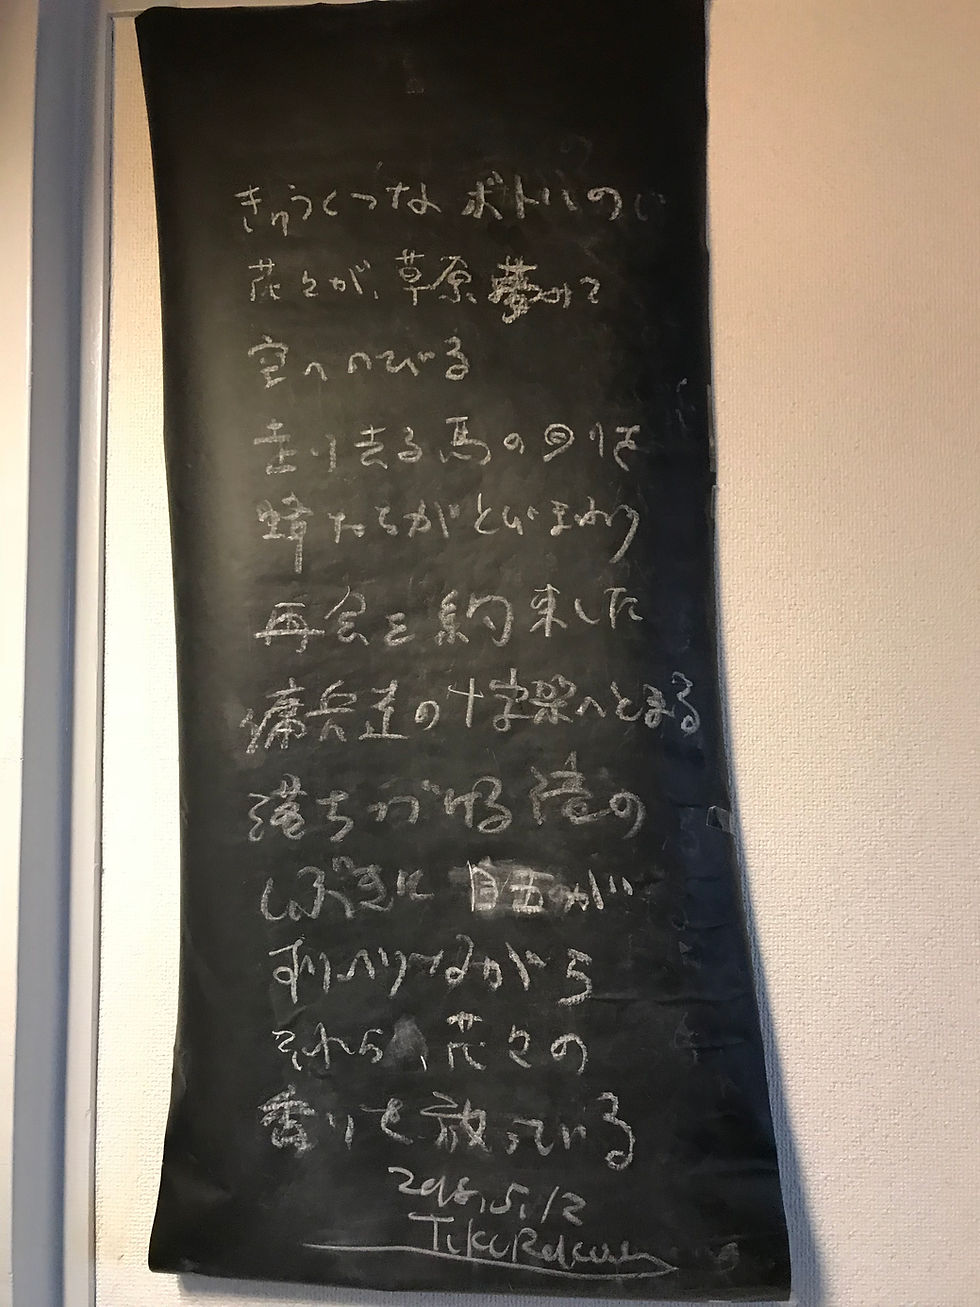 きゅうくつなボトルの
花々が、草原夢みて
空へのびる
走り去る馬の回りを
蜂たちがとびまわり
再会を約束した
傭兵達の十字架へとまる
落ちかける滝の
しぶきに
すりへりながら
それら、花々の
香りを放っている